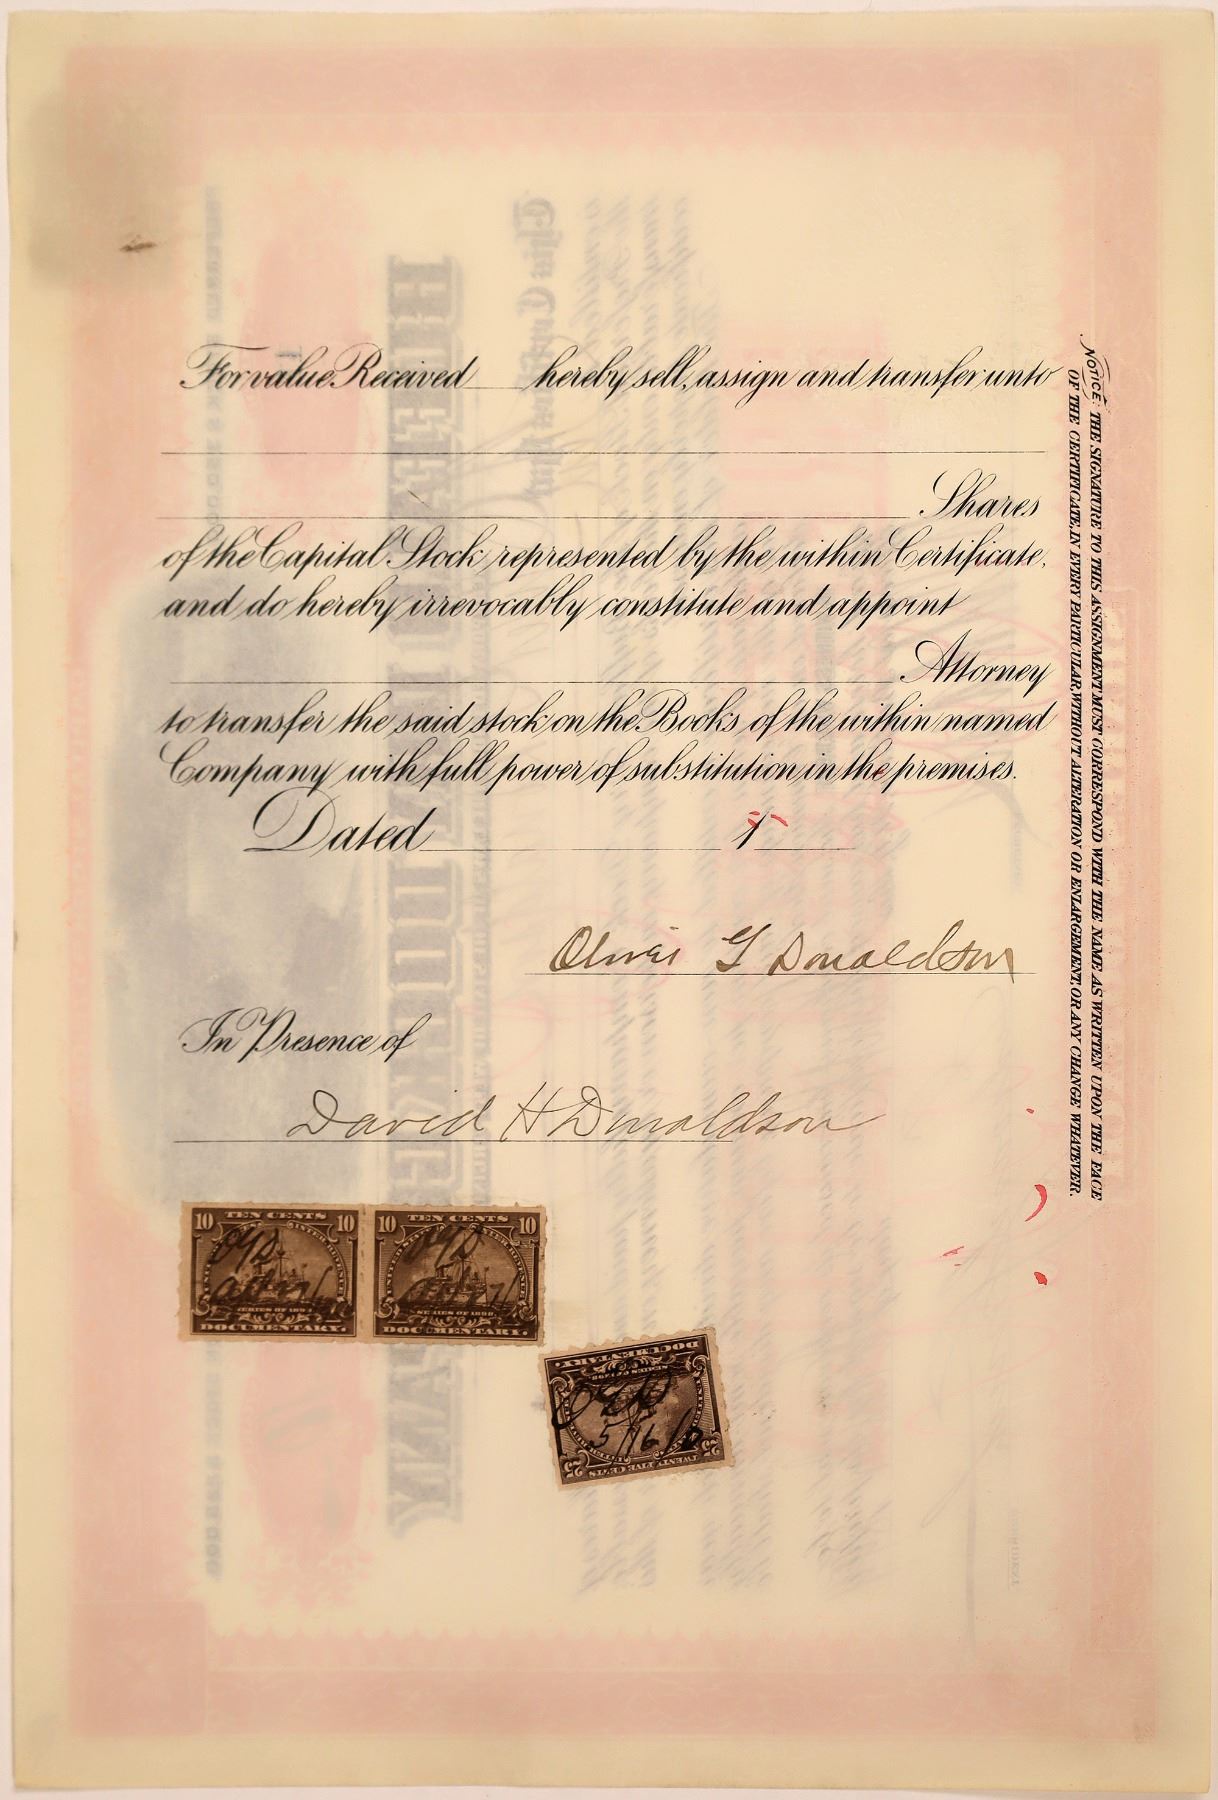 For value Received hereby sell, assign and transfer unto
Shares
of the Capital Stock represented by the within Certificate,
and do hereby irrevocably constitute and appoint
Attorney
to transfer the said stock on the Books of the within named
Company with full power of substitution in the premises.
Dated 1
Oliver G Donaldson
In Presence of
David H Donaldson
NOTICE: THE SIGNATURE TO THIS ASSIGNMENT MUST CORRESPOND WITH THE NAME AS WRITTEN UPON THE FACE
OF THE CERTIFICATE, IN EVERY PARTICULAR, WITHOUT ALTERATION OR ENLARGEMENT, OR ANY CHANGE WHATEVER.
10 TEN CENTS 10
SERIES OF 1898
DOCUMENTARY.
10 TEN CENTS 10
SERIES OF 1898
DOCUMENTARY.
DOCUMENTARY
5/16/
25 TWENTY FIVE CENTS 25